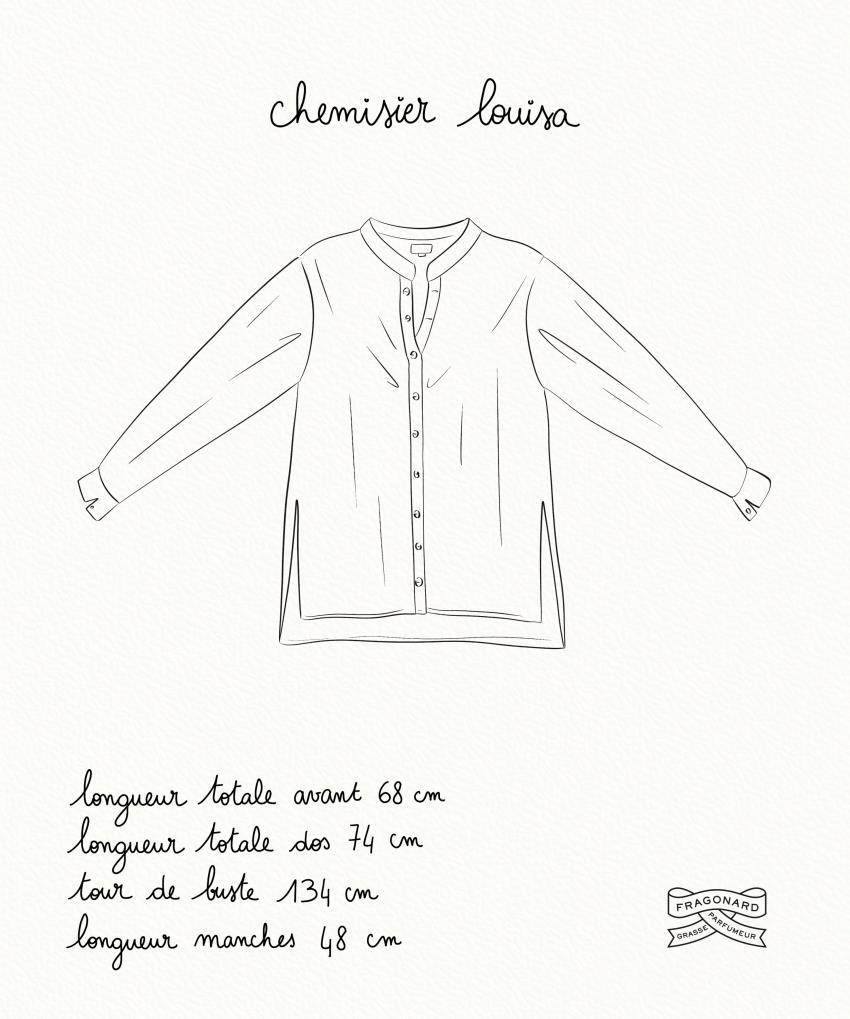 chemisier louisa
longueur totale avant 68 cm
longueur totale dos 74 cm
tour de buste 134 cm
longueur manches 48 cm
FRAGONARD
GRASSE PARFUMEUR